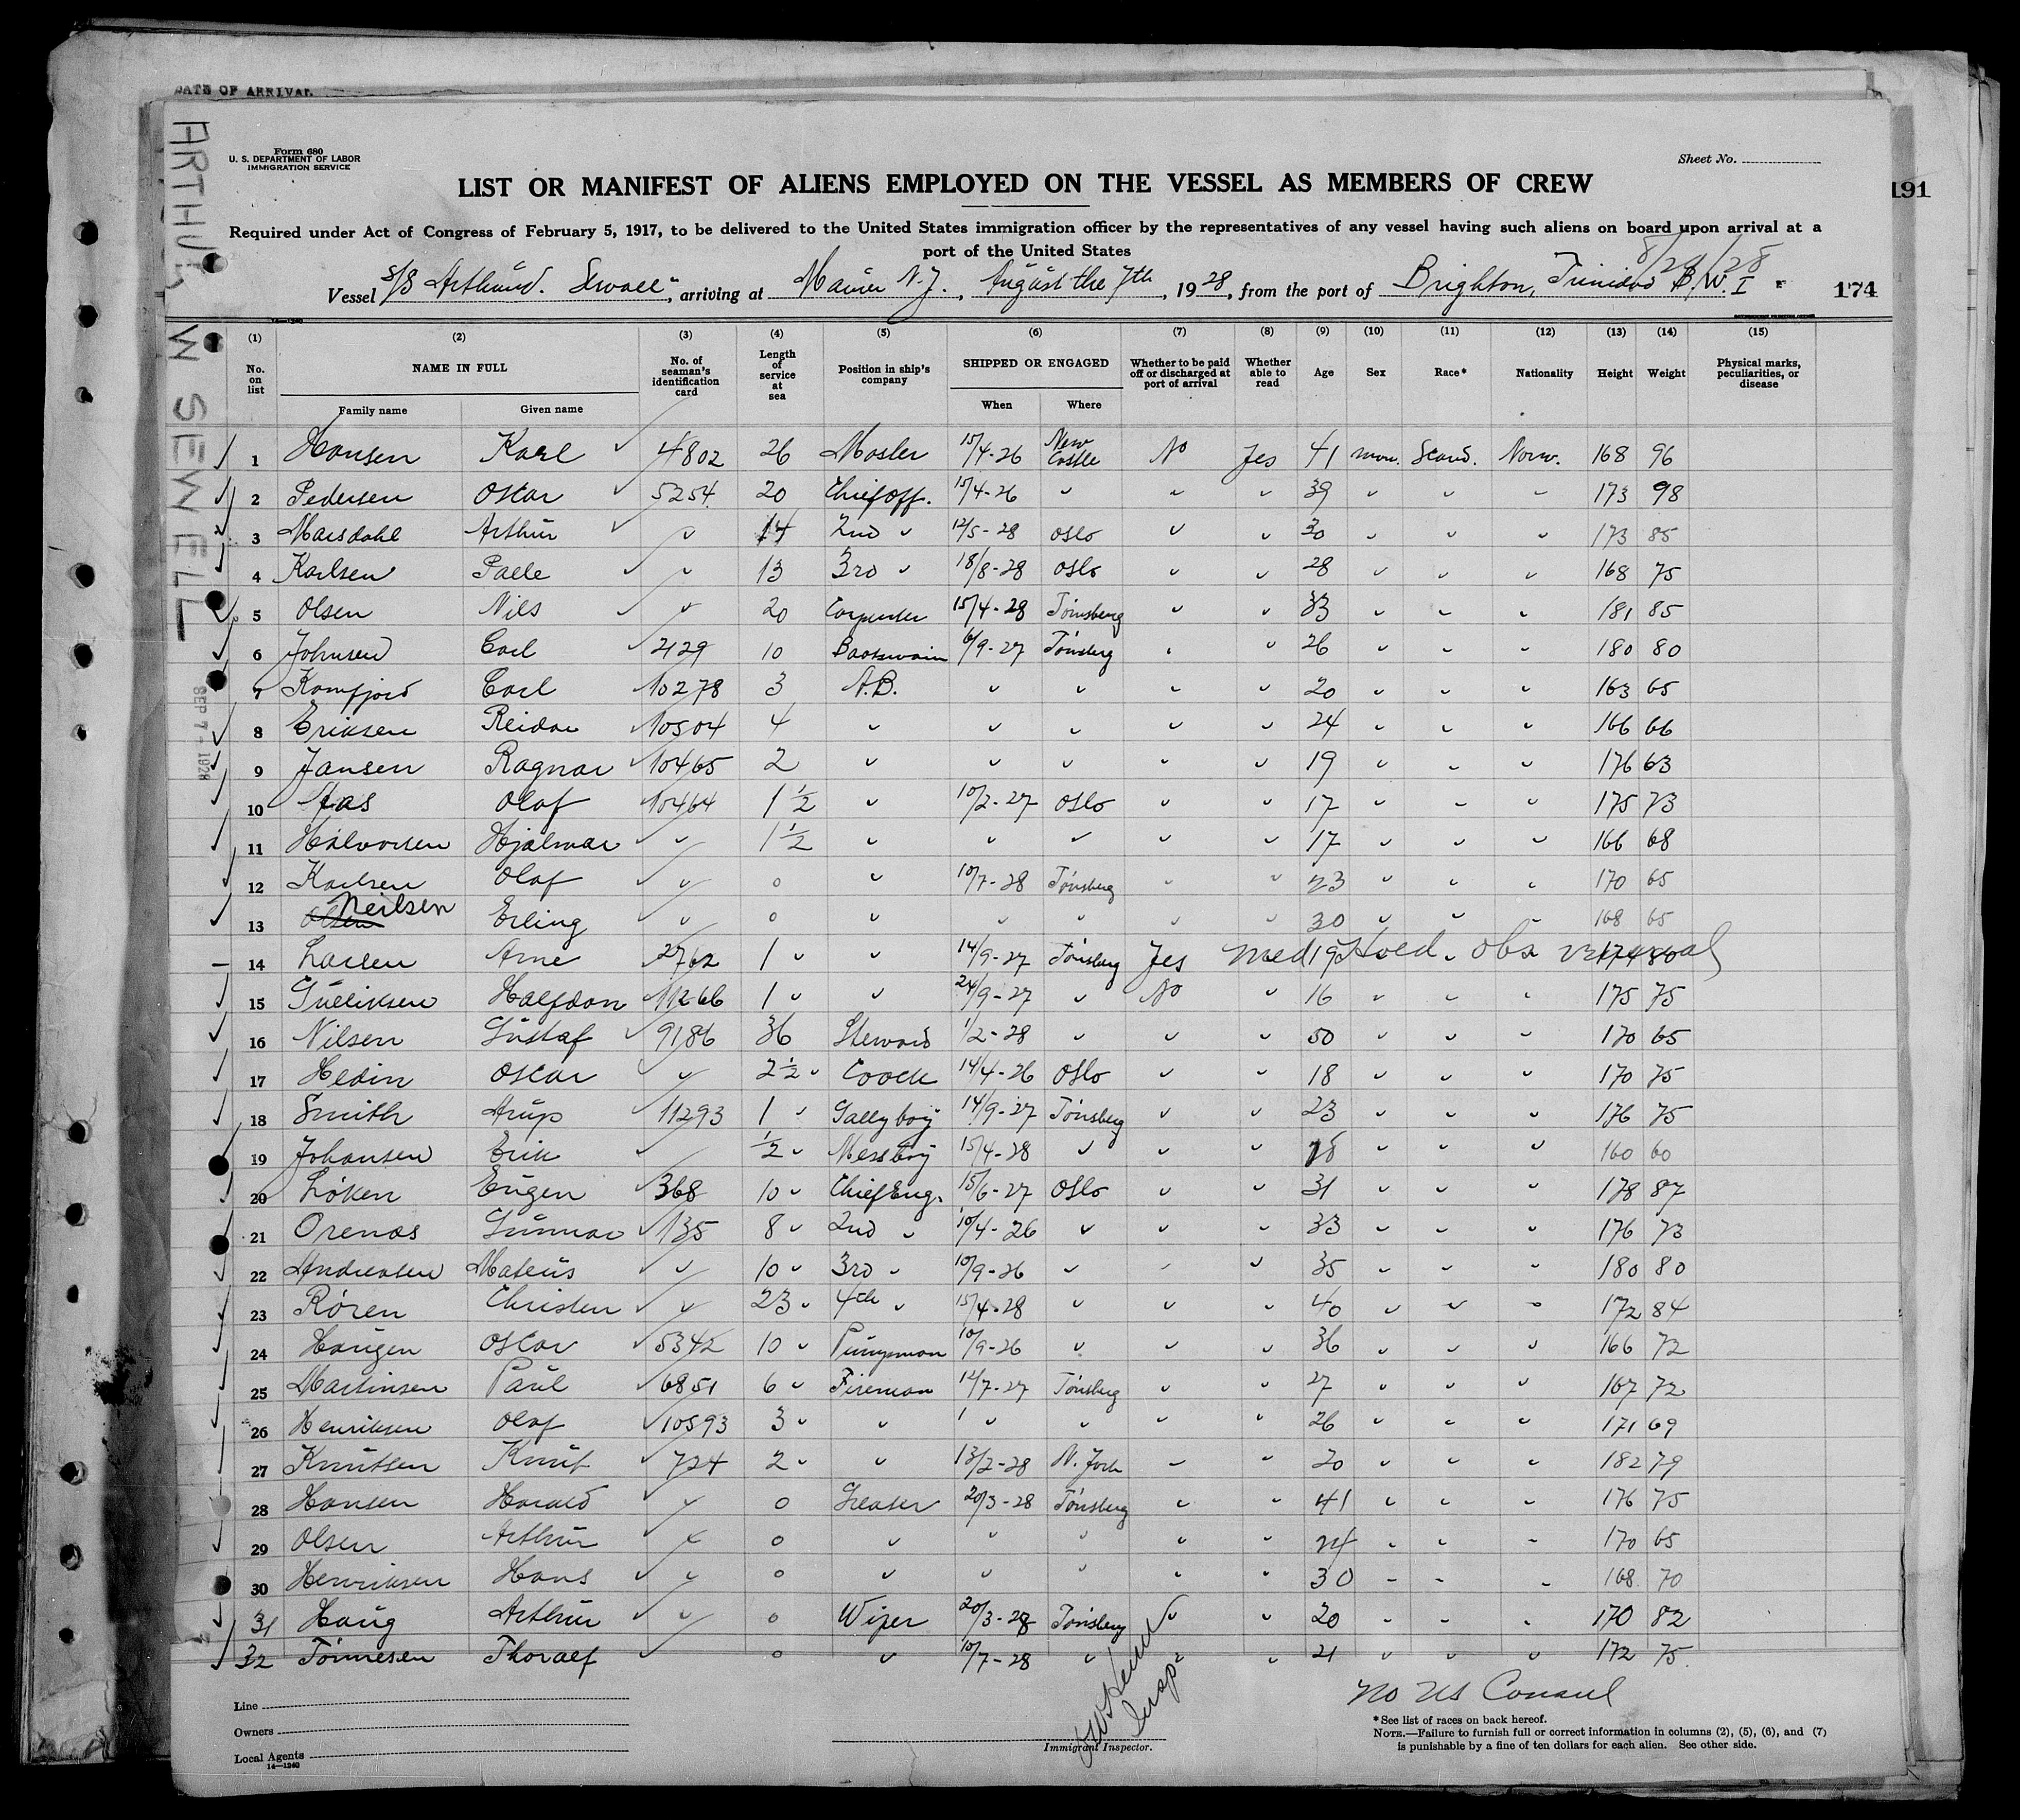 DATE OF ARRIVAL
ARTHUR W SEWELL
SEP 7 - 1928
Form 680
U. S. DEPARTMENT OF LABOR
IMMIGRATION SERVICE
Sheet No.
191
LIST OR MANIFEST OF ALIENS EMPLOYED ON THE VESSEL AS MEMBERS OF CREW
Required under Act of Congress of February 5, 1917, to be delivered to the United States immigration officer by the representatives of any vessel having such aliens on board upon arrival at a
port of the United States
Vessel S/S Arthur W. Sewall", arriving at Maurer N.J., August the 7th, 1928, from the port of Brighton, Trinidad B.W.I 174
14—1240
(1) (2) (3) (4) (5) (6) (7) (8) (9) (10) (11) (12) (13) (14) (15)
No. on list NAME IN FULL No. of seaman's identification card Length of service at sea Position in ship's company SHIPPED OR ENGAGED Whether to be paid off or discharged at port of arrival Whether able to read Age Sex Race* Nationality Height Weight Physical marks, peculiarities, or disease
Family name Given name When Where
1 Hansen Karl 4802 26 Master 15/4-26 New Castle No Yes 41 Scand. Norw. 168 96
2 Pedersen Oscar 5254 20 Chief off. 15/4-26 " " " 39 " " " 173 98
3 Marsdahl Arthur " 14 2nd " 12/5-28 Oslo " " 30 " " " 173 85
4 Karlsen Palle " 13 3rd " 18/8-28 Oslo " " 28 " " " 168 75
5 Olsen Nils " 20 Carpenter 15/4-28 Tønsberg " " 33 " " " 181 85
6 Johnsen Carl 2129 10 Baatswain 6/9-27 Tønsberg " " 26 " " " 180 80
7 Kamfjord Carl 10278 3 A.B. " " " " 20 " " " 163 65
8 Eriksen Reidar 10504 4 " " " " " 24 " " " 166 66
9 Jansen Ragnar 10465 2 " " " " " 19 " " " 176 63
10 Aas Olaf 10464 1 1/2 " 10/2-27 Oslo " " 17 " " " 175 73
11 Halvorsen Hjalmar " 1 1/2 " " " " " 17 " " " 166 68
12 Karlsen Olaf " 0 " 10/7-28 Tønsberg " " 23 " " " 170 65
13 Olsen Neilsen Erling " 0 " " " " " 30 " " " 168 65
14 Larsen Arne 2762 1 " " 14/9-27 Tønsberg Yes Med 19 Hoed. Obs venereal 174 80
15 Gulliksen Halfdan 11266 1 " " 24/9-27 " No " 16 " " " 175 75
16 Nilsen Gustaf 9186 36 Steward 1/2-28 " " " 50 " " " 170 65
17 Hedin Oscar " 2 1/2 " Coock 14/4-26 Oslo " " 18 " " " 170 75
18 Smith Arup 11293 1 " Gallyboy 14/9-27 Tønsberg " " 23 " " " 176 75
19 Johansen Erik 1/2 " Messboy 15/4-28 " " " 18 " " " 160 60
20 Løken Eugen 368 10 " Chief Eng. 15/6-27 Oslo " " 31 " " " 178 87
21 Orenas Gunnar 135 8 " 2nd " 10/4-26 " " " 33 " " " 176 73
22 Andreasen Mateus " 10 " 3rd " 10/9-26 " " " 35 " " " 180 80
23 Røren Christen " 23 " 4th " 15/4-28 " " " 40 " " " 172 84
24 Haugen Oscar 5342 10 " Pumpman 10/9-26 " " " 36 " " " 166 72
25 Martinsen Paul 6851 6 " Fireman 12/7-27 Tønsberg " " 27 " " " 167 72
26 Henriksen Olaf 10593 3 " " " " " " 26 " " " 171 69
27 Knutsen Knut 724 2 " " 13/2-28 N. York " " 20 " " " 182 79
28 Hansen Harald " 0 Greaser 20/3-28 Tønsberg " " 41 " " " 176 75
29 Olsen Arthur " 0 " " " " " 24 " " " 170 65
30 Henriksen Hans " 0 " " " " " 30 " " " 168 70
31 Haug Arthur " 0 Wiper 20/3-28 Tønsberg " " 20 " " " 170 82
32 Tønnesen Thoralf 0 " 10/7-28 " " " 21 " " " 172 75
No US Consul
Line
Owners
Local Agents
14—1240
Insp
Immigrant Inspector.
*See list of races on back hereof.
NOTE.—Failure to furnish full or correct information in columns (2), (5), (6), and (7)
is punishable by a fine of ten dollars for each alien. See other side.